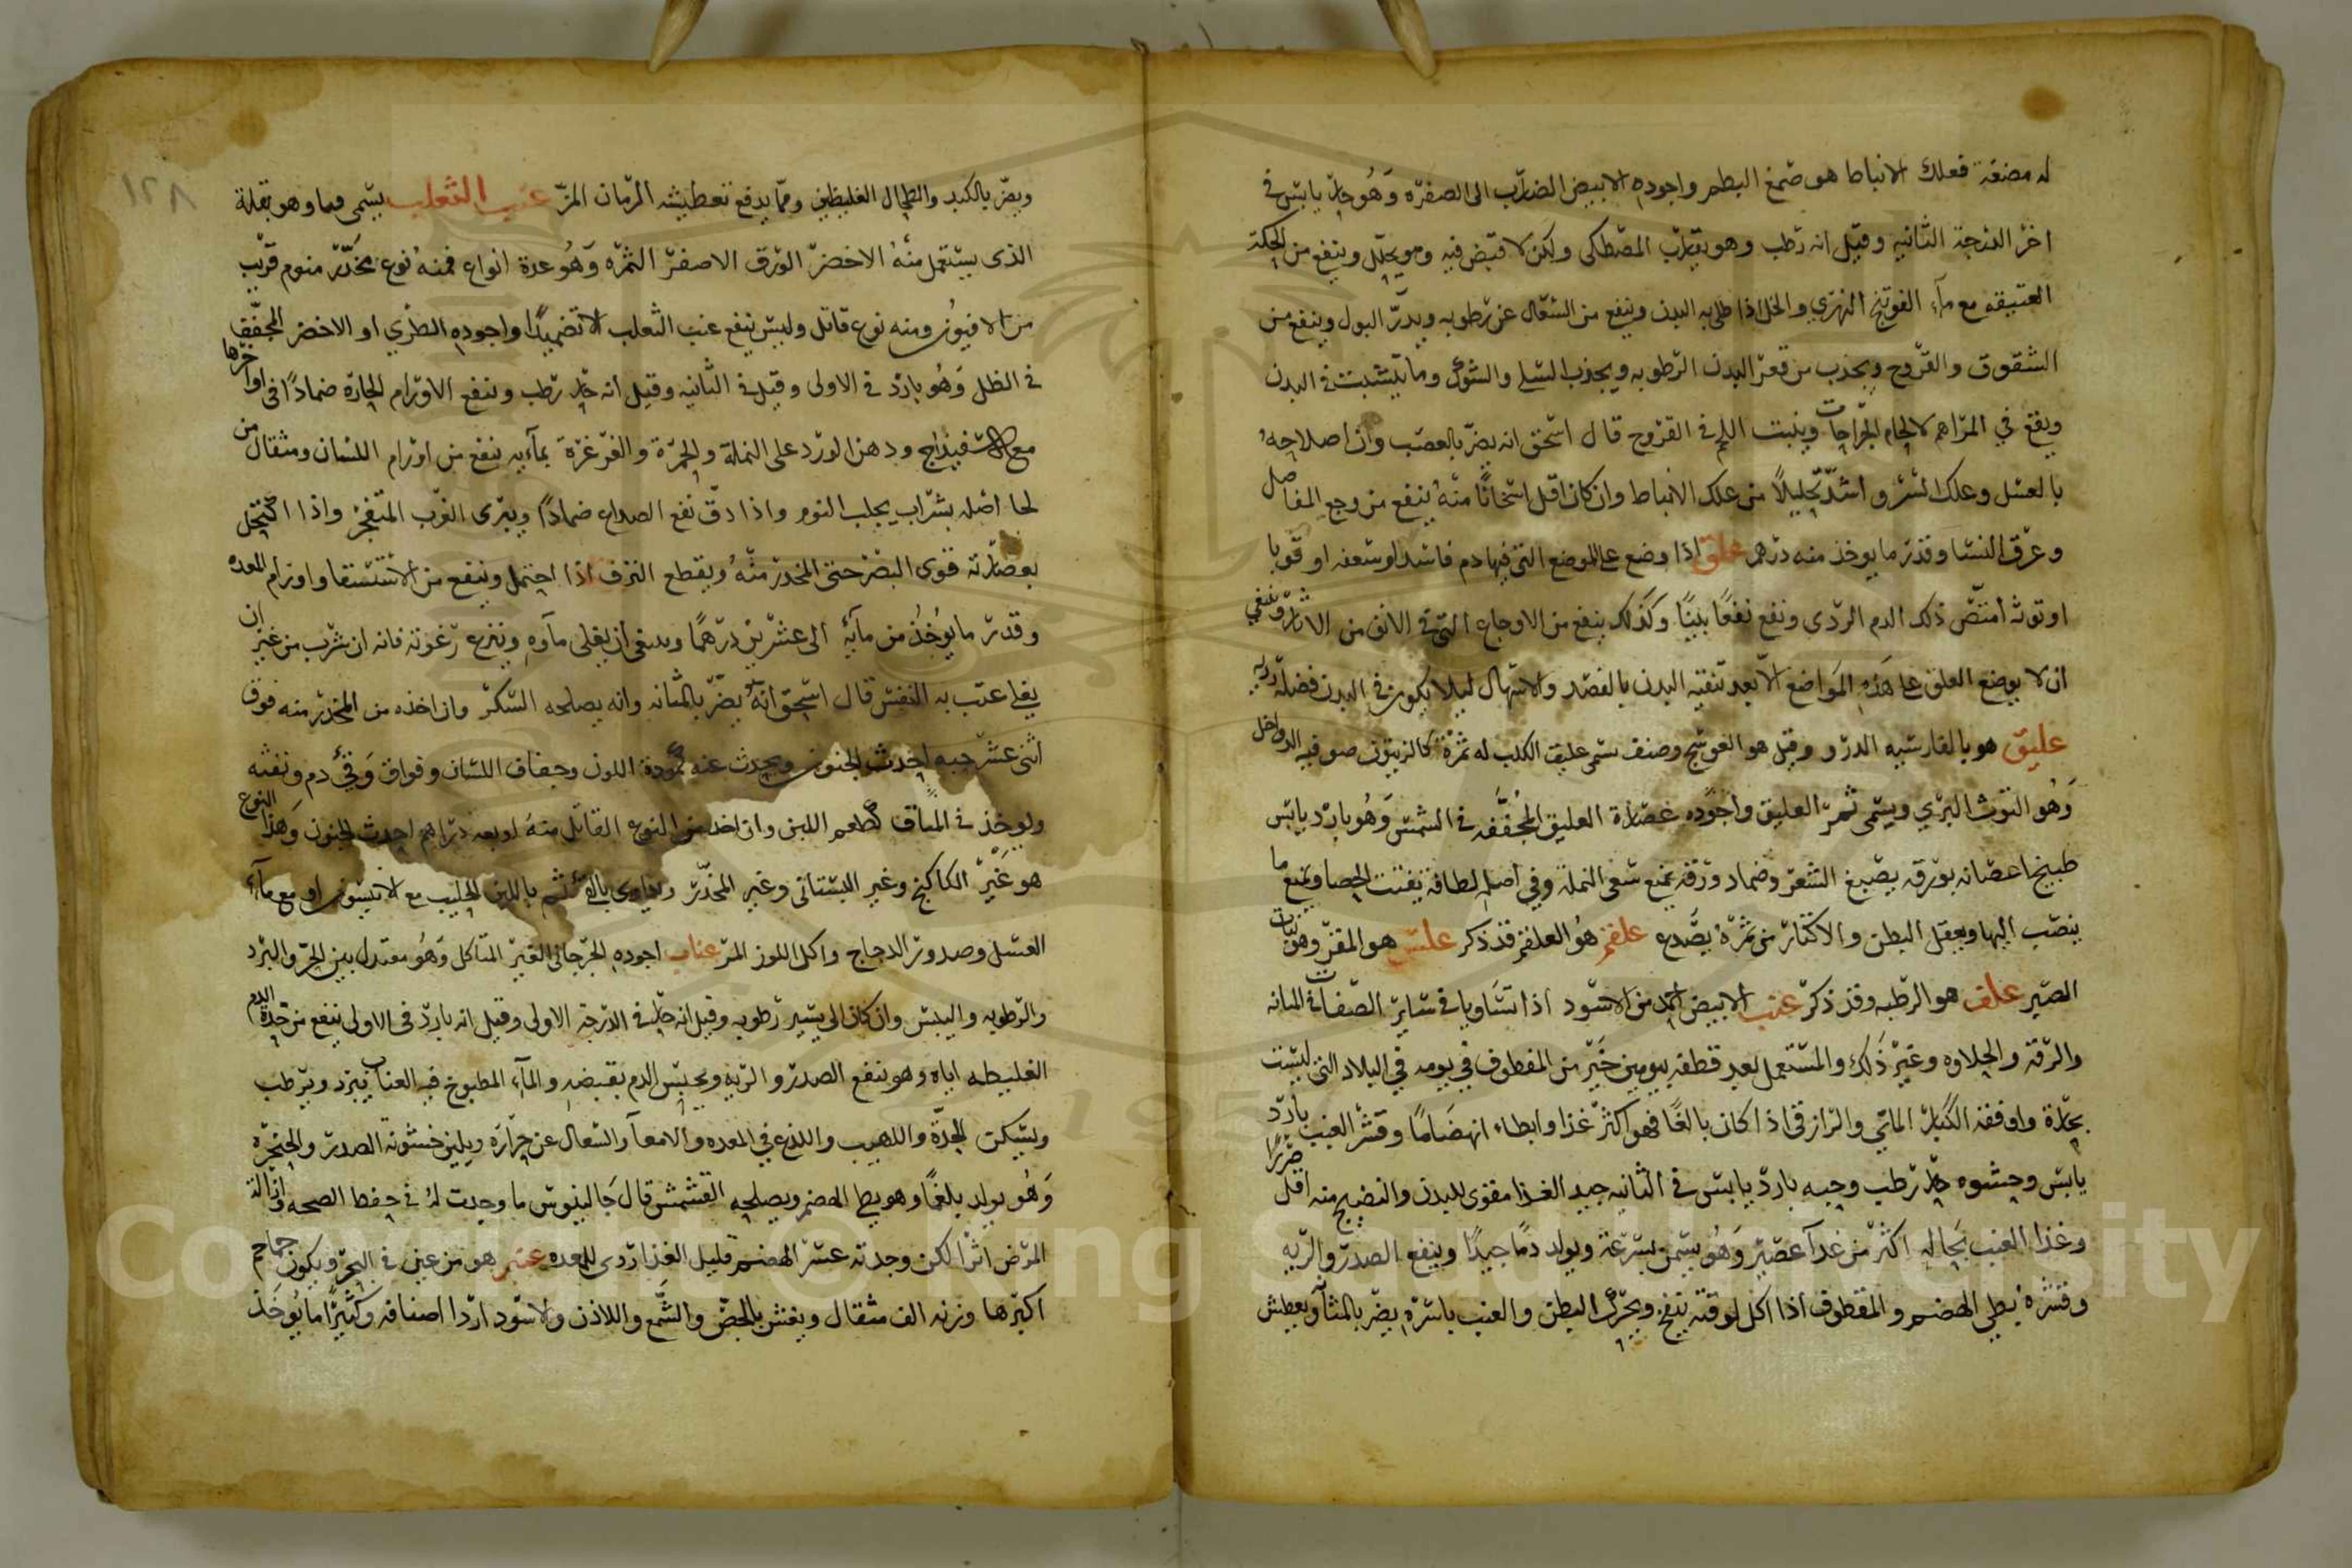 له مضغة فعلك الانباط هو صمغ البطم واجوده الابيض الضارب الى الصفره وهو حار يابس في
اخر الدرجة الثانيه وقيل انه رطب وهو يقارب المصطكى ولكن لا قبض فيه وهو يحلل وينفع من الحكة
العتيقه مع ماء الفوتنج النهري والخل اذا طلى به البدن وينفع من السعال عن رطوبه ويدر البول وينفع من
الشقوق والقروح ويجذب من قعر البدن الرطوبه ويجذب السلى والشوك وما يتشبث في البدن
ويقع في المراهم لالحام الجراحات وينبت اللحم في القروح قال اسحق انه يضر بالعصب وان اصلاحه
بالعسل وعلك السرو اشد تحليلا من علك الانباط وان كان اقل اسخانا منه ينفع من وجع المفاصل
وعرق النسا وقدر ما يوخذ منه درهم علق اذا وضع على الموضع التي فيها دم فاسد او سعفه او قوبا
او توثه امتص ذلك الدم الردى ونفع نفعا بينا وكذلك ينفع من الاوجاع التي في الانف من
ان لا يوضع العلق على هذه المواضع الا بعد تنقيه البدن بالفصد والاسهال ليلا يكون في البدن فضله رديه
عليق هو بالفارسيه الدرو وقيل هو العوسج وصنف سمى عليق الكلب له ثمرة كالزيتون صوفيه الداخل
وهو التوث البري ويسمى ثمر العليق واجوده عصارة العليق المجففه في الشمس وهو بارد يابس
طبيخ اغصانه بورقه يصبغ الشعر وضماد ورقه يمنع سعى النملة وفي اصله لطافة يفتت الحصا ويمنع ما
ينصب اليها ويعقل البطن والاكثار من ثمره يصدع علقم هو العلقم قد ذكر علس هو المقر وهو نبات
الصبر علف هو الرطبه وقد ذكر عنب الابيض احمد من الاسود اذا تساويا في ساير الصفات في المتانه
والرقة والحلاوه وغير ذلك والمستعمل بعد قطفه بيومين خير من المقطوف في يومه في البلاد التي ليست
بحارة واوفقه الكبار المائي والرازقي اذا كان بالغا فهو اكثر غذا وابطاء انهضاما وقشر العنب بارد
يابس وحشوه حار رطب وحبه بارد يابس في الثانيه جيد الغذا مقوى للبدن والنضيج منه اقل ضررا
وغذا العنب بحاله اكثر من غذآ عصير وهو يسمن بسرعة ويولد دما جيدا وينفع الصدر والريه
وقشره بطي الهضم والمقطوف اذا اكل لوقته ينفخ ويحرك البطن والعنب باسره يضر بالمثانه ويعطش
ويضر بالكبد والطحال الغليظين ومما يدفع تعطيشه الرمان المز عنب الثعلب يسمى فما وهو بقلة
الذى يستعمل منه الاخضر الورق الاصفر الثمره وهو عدة انواع فمنه نوع مخدر منوم قريب
من الافيون ومنه نوع قاتل وليس ينفع عنب الثعلب الا تضميدا واجوده الطري او الاخضر المجفف
في الظل وهو بارد في الاولى وقيل في الثانيه وقيل انه حار رطب وينفع الاورام الحارة ضمادا في اواخرها
مع الاسفيذاج ودهن الورد على النملة والحمرة والغرغرة بمآيه ينفع من اورام اللسان ومثقال من
لحا اصله بشراب يجلب النوم واذا دق نفع الصداع ضمادا ويبرى الغرب المتفجر واذا اكتحل
بعصارته قوى البصر حتى المخدر منه ويقطع النزف اذا احتمل وينفع من الاستسقا واورام المعده
وقدر ما يوخذ من مآيه الى عشرين درهما وينبغى ان يغلى مآوه وينزع رغوته فانه ان شرب من غير ان
يغلى عتب به النفس قال اسحق انه يضر بالمثانه وانه يصلحه السكر وان اخذه من المخدر منه فوق
اثنى عشر حبه احدث الجنون ويحدث عنه كمودة اللون وجفاف اللسان وفواق وقئ دم ونفثه
ويوخذ في المذاق كطعم اللبن وان اخذ من النوع القاتل منه اربعه دراهم احدث الجنون وهذا النوع
هو غير الكاكنج وغير البستاني وغير المخدر ويداوى بالقئ ثم باللبن الحليب مع الانيسون او مع مآء
العسل وصدور الدجاج واكل اللوز المر عناب اجوده الجرجاني الغير المتآكل وهو معتدل بين الحر والبرد
والرطوبه واليبس وان كان الى يسير رطوبه وقيل انه حار في الدرجة الاولى وقيل انه بارد في الاولى ينفع من حدة الدم
الغليظه اياه وهو ينفع الصدر والريه ويحبس الدم بقبضه والمآء المطبوخ فيه العناب يبرد ويرطب
ويسكن الحدة واللهيب واللذع في المعده والامعآ والسعال عن حرارة ويلين خشونة الصدر والحنجرة
وهو يولد بلغما وهو بطي الهضم ويصلحه القشمش قال جالينوس ما وجدت له في حفظ الصحه وازالة
المرض اثرا لكن وجدته عسر الهضم قليل الغذا ردى للمعده عنبر هو من عين في البحر ويكون جماجم
اكبرها وزنه الف مثقال ويغش بالجص والشمع واللاذن والاسود اردا اصنافه وكثيرا ما يوخذ
١٢٨
Copyright © King Saud University
1957